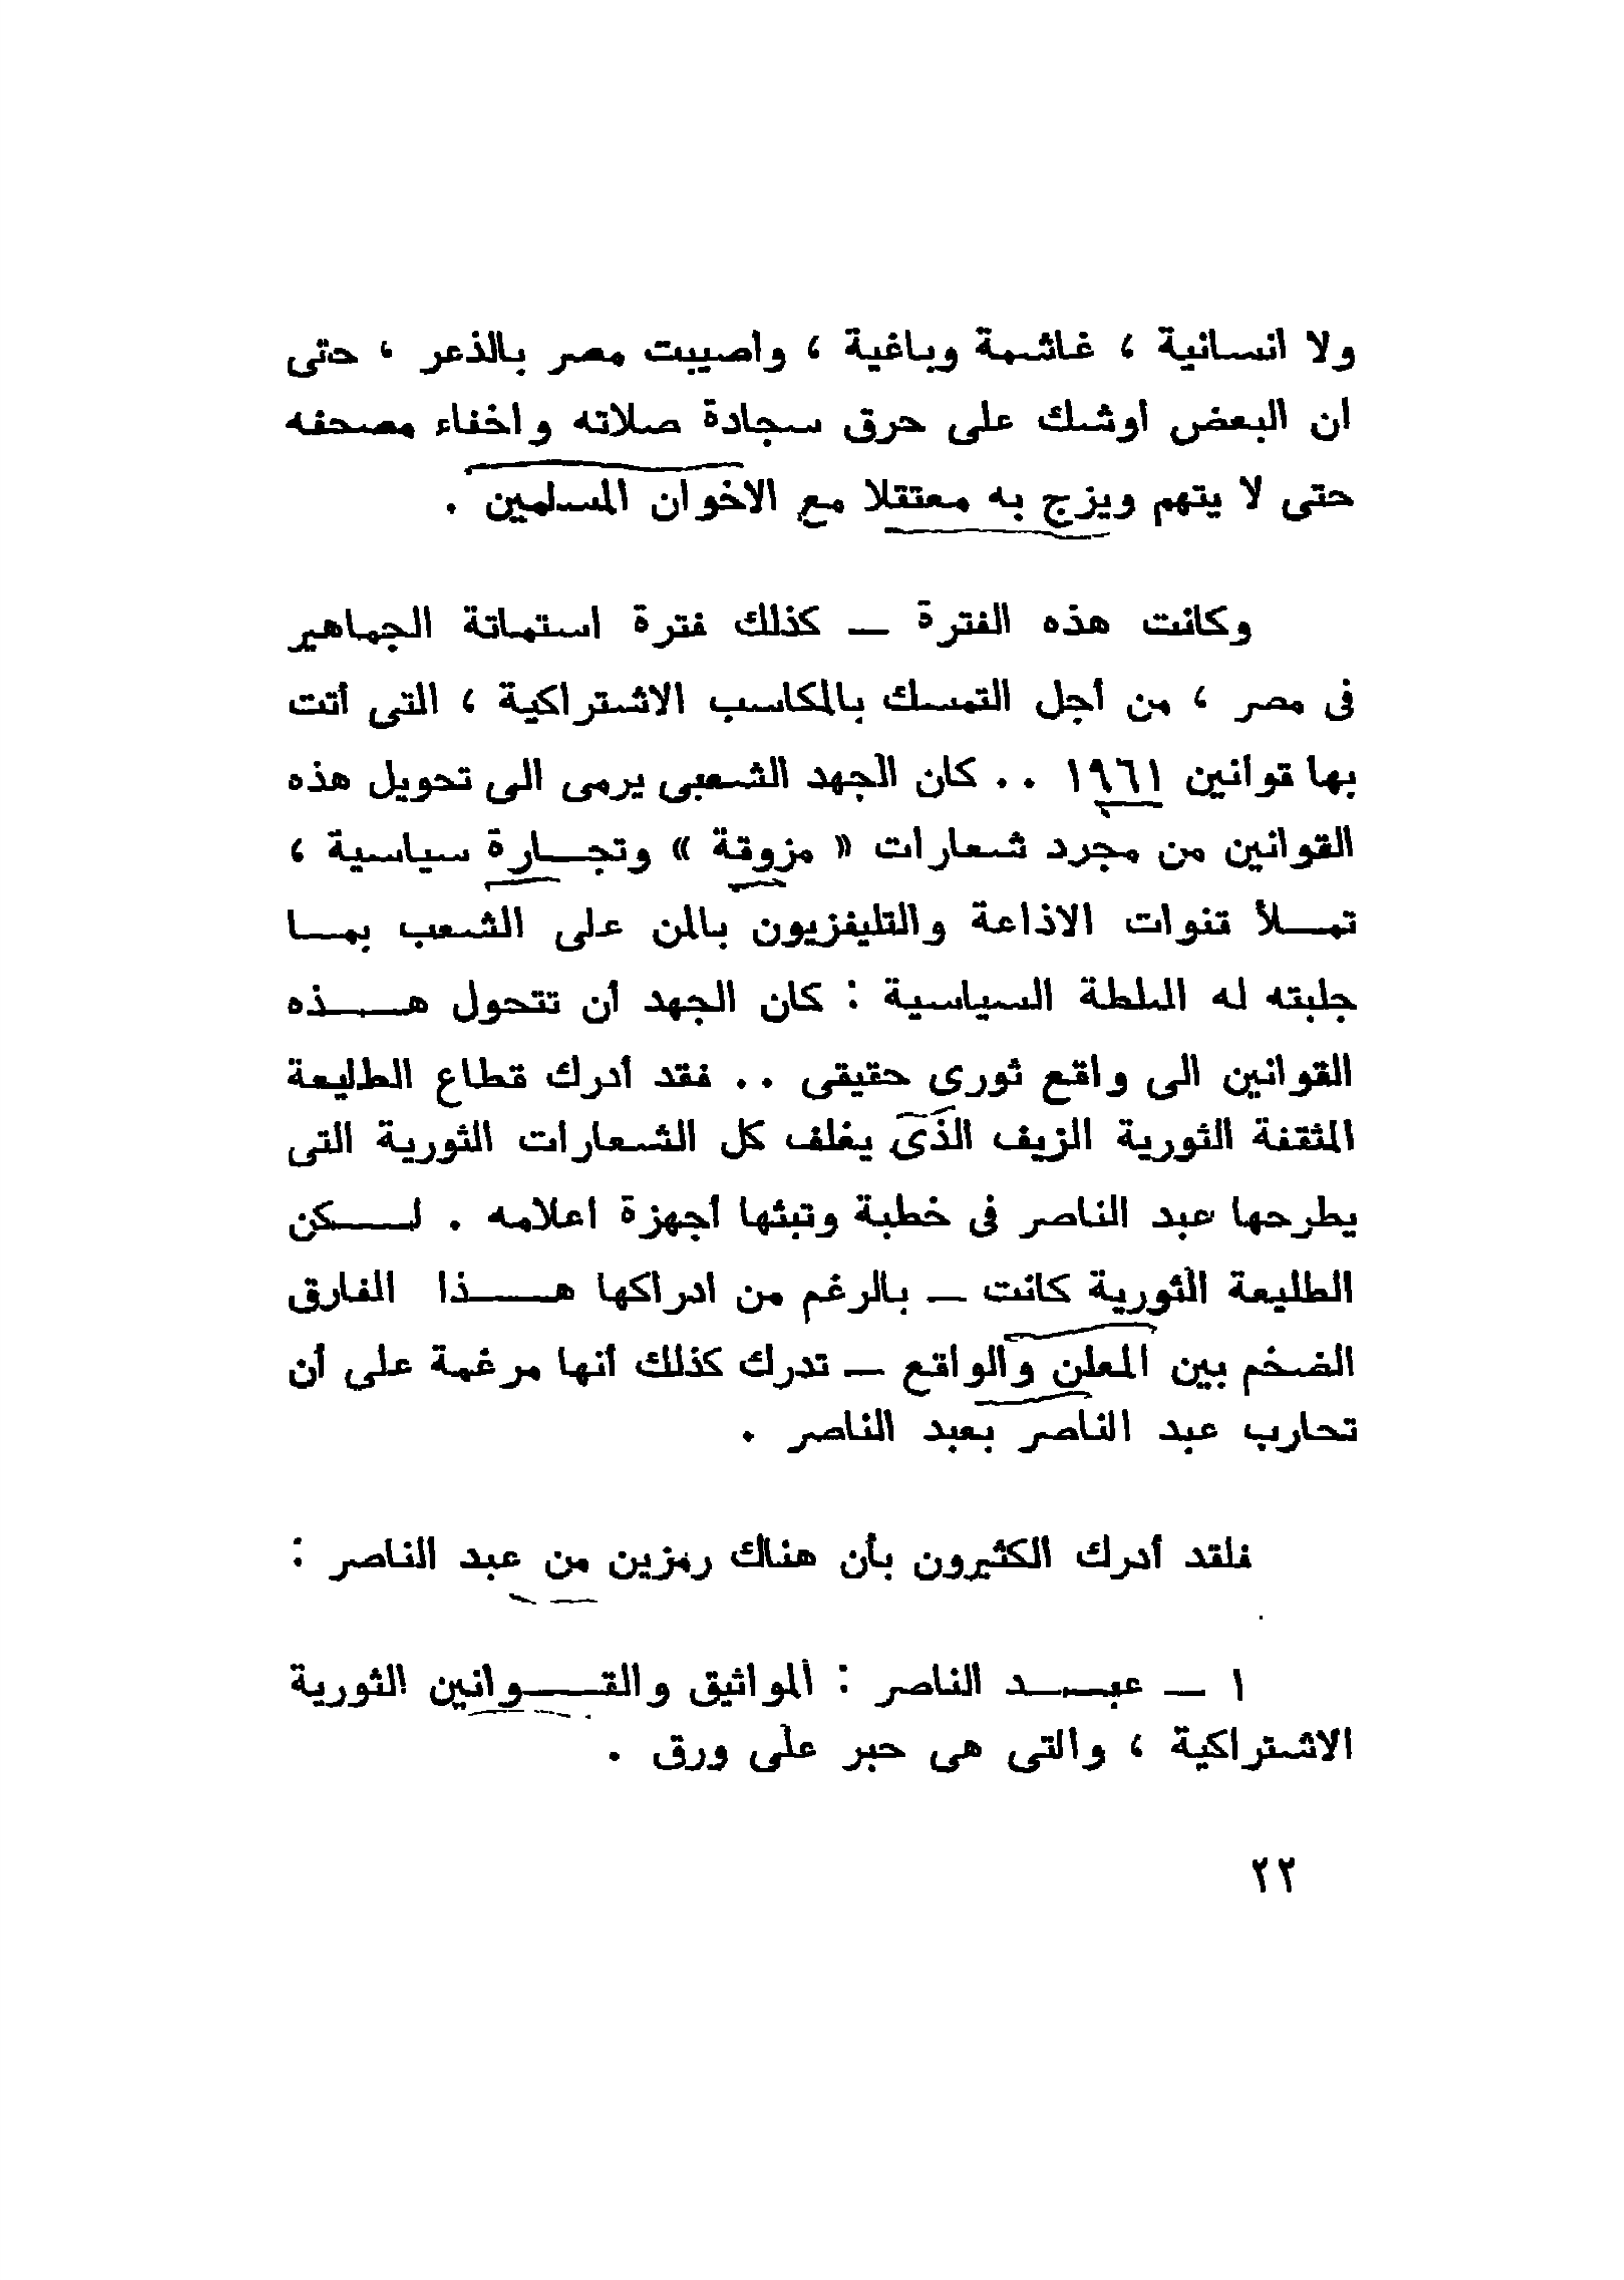 ولا انسانية ، غاشمة وباغية ، واصيبت مصر بالذعر ، حتى
ان البعض أوشك على حرق سجادة صلاته واخفاء مصحفه
حتى لا يتهم ويزج به معتقلا مع الاخوان المسلمين .
وكانت هذه الفترة — كذلك فترة استماتة الجماهير
فى مصر ، من أجل التمسك بالمكاسب الاشتراكية ، التى أتت
بها قوانين ١٩٦١ . . كان الجهد الشعبى يرمى الى تحويل هذه
القوانين من مجرد شعارات « مزوقة » وتجارة سياسية ،
تملأ قنوات الاذاعة والتليفزيون بالمن على الشعب بما
جلبته له الملطة السياسية : كان الجهد أن تتحول هذه
القوانين الى واقع ثورى حقيقى . . فقد أدرك قطاع الطليعة
المثقفة الثورية الزيف الذى يغلف كل الشعارات الثورية التى
يطرحها عبد الناصر فى خطبة وتبثها أجهزة اعلامه . لكن
الطليعة الثورية كانت — بالرغم من ادراكها هذا الفارق
الضخم بين المعلن والواقع — تدرك كذلك أنها مرغمة على أن
تحارب عبد الناصر بعبد الناصر .
فلقد أدرك الكثيرون بأن هناك رمزين من عبد الناصر :
١ — عبد الناصر : المواثيق والقوانين الثورية
الاشتراكية ، والتى هى حبر على ورق .
٢٢